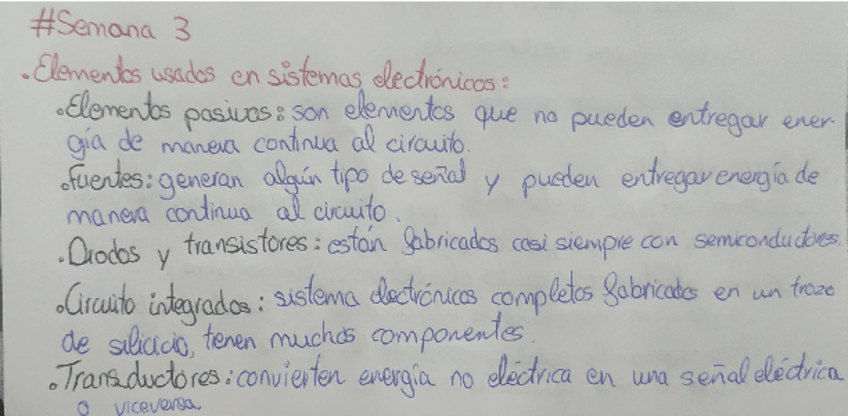 #Semana 3
• Elementos usados en sistemas electrónicos:
• Elementos pasivos: son elementos que no pueden entregar ener-
gía de manera continua al circuito.
• Fuentes: generan algún tipo de señal y pueden entregar energía de
manera continua al circuito.
• Diodos y transistores: están fabricados casi siempre con semiconductores.
• Circuito integrados: sistema electrónicos completos fabricados en un trozo
de silicio, tienen muchos componentes.
• Transductores: convierten energía no eléctrica en una señal eléctrica
o viceversa